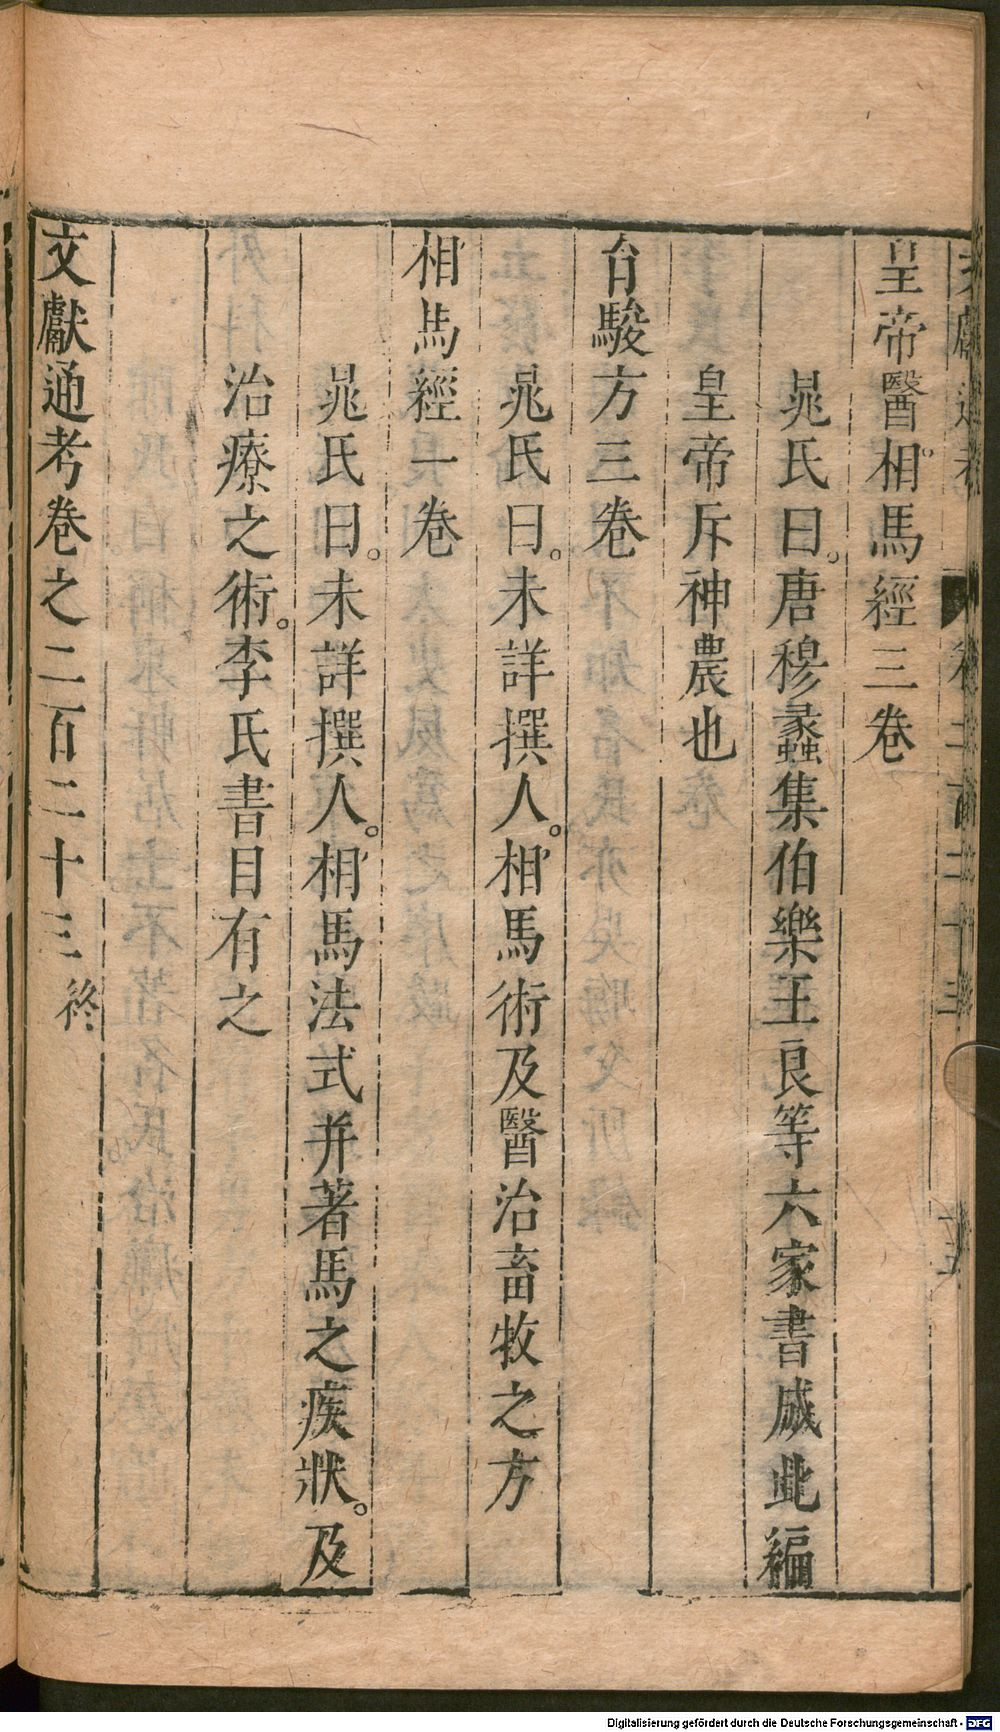 皇帝醫相馬經三卷
晁氏曰。唐穆蠡集伯樂王良等六家書成此編
皇帝斥神農也
育駿方三卷
晁氏曰。未詳撰人。相馬術及醫治畜牧之方
相馬經一卷
晁氏曰。未詳撰人。相馬法式并著馬之疾狀。及
治療之術。李氏書目有之
文獻通考卷之二百二十三終
Digitalisierung gefördert durch die Deutsche Forschungsgemeinschaft - DFG